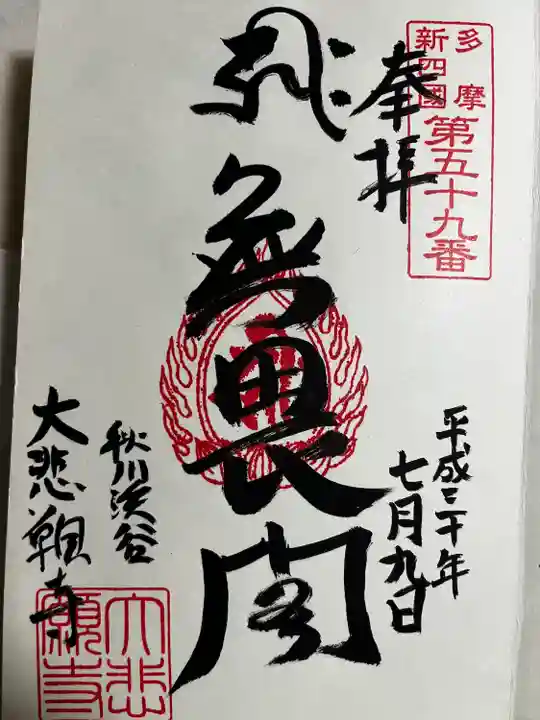 多摩
新四國
第五十九番
奉拝
無畏閣
平成三十年
七月九日
秋川渓谷
大悲願寺
大悲願寺